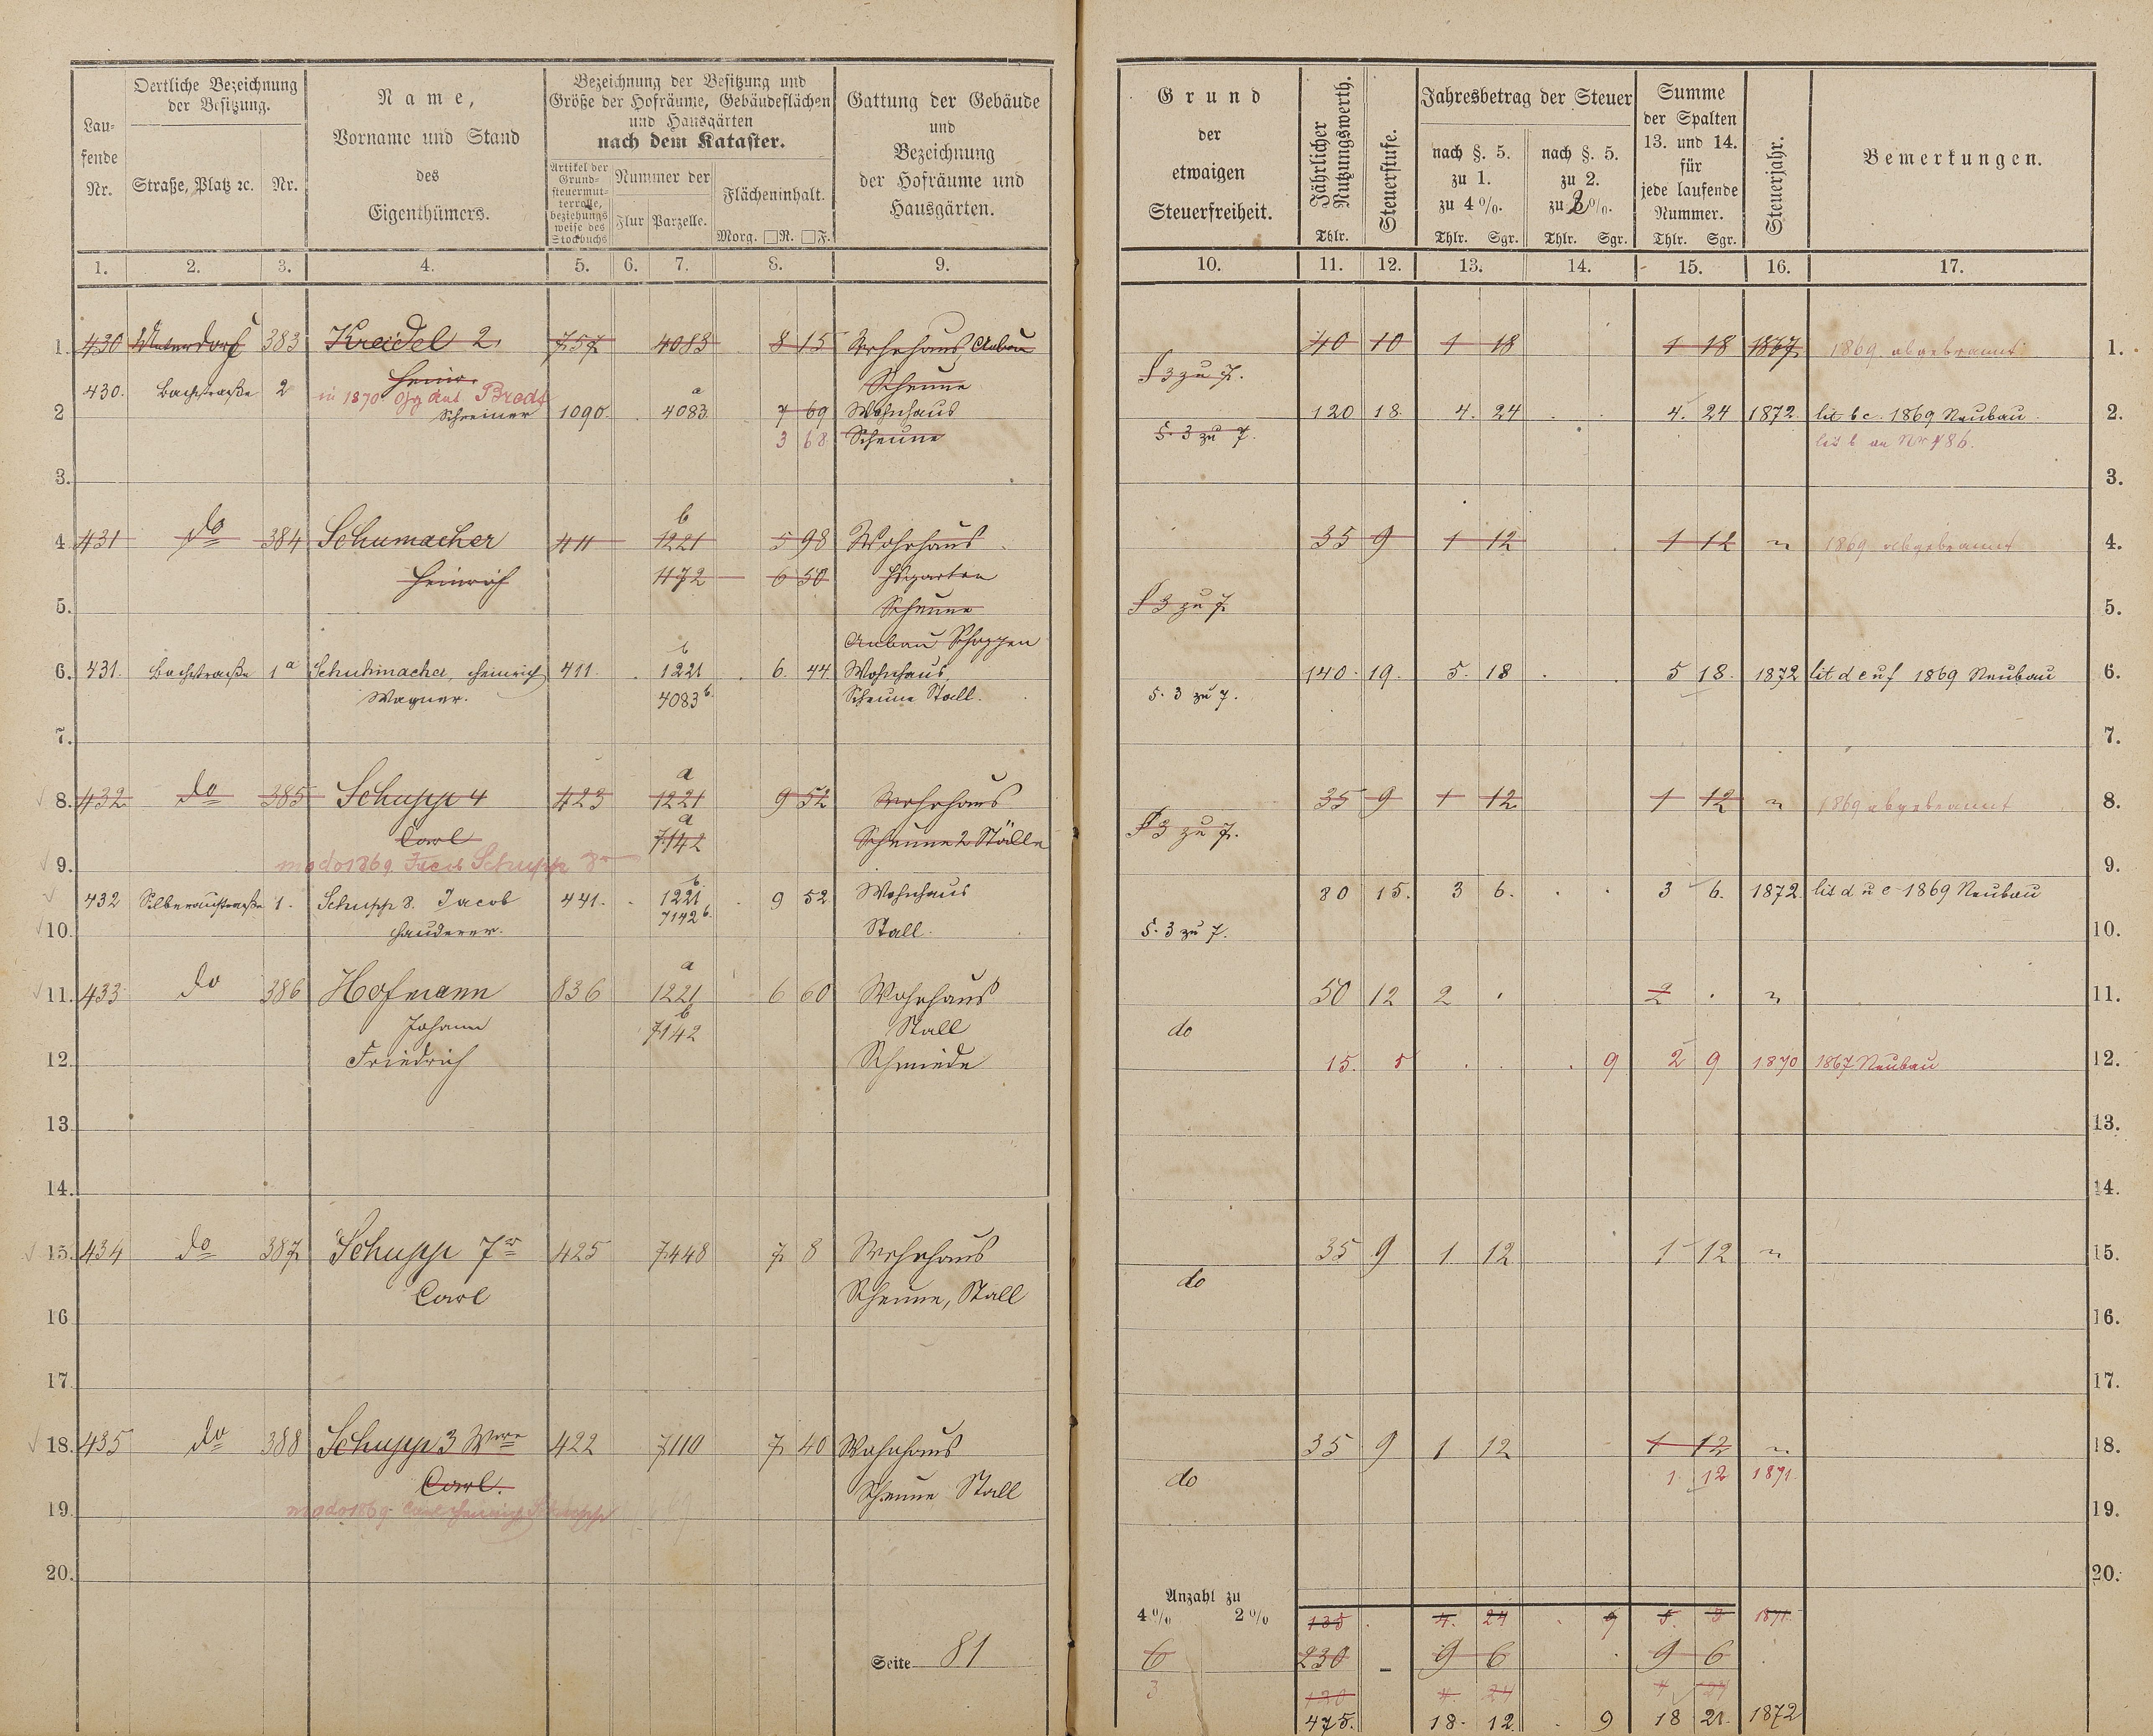 Lau-
fende
Nr.
Oertliche Bezeichnung
der Besitzung.
Straße, Platz ꝛc.
Nr.
Name,
Vorname und Stand
des
Eigenthümers.
Bezeichnung der Besitzung und
Größe der Hofräume, Gebäudeflächen
und Hausgärten
nach dem Kataster.
Artikel der
Grund-
steuermut-
terrolle,
beziehungs
weise des
Stockbuchs
Nummer der
Flur
Parzelle.
Flächeninhalt.
Morg. □R. □F.
Gattung der Gebäude
und
Bezeichnung
der Hofräume und
Hausgärten.
Grund
der
etwaigen
Steuerfreiheit.
Jährlicher
Nutzungswerth.
Thlr.
Steuerstufe.
Jahresbetrag der Steuer
nach §. 5.
zu 1.
zu 4 %.
Thlr. Sgr.
nach §. 5.
zu 2.
zu 2 %.
Thlr. Sgr.
Summe
der Spalten
13. und 14.
für
jede laufende
Nummer.
Thlr. Sgr.
Steuerjahr.
Bemerkungen.
1. 2. 3. 4. 5. 6. 7. 8. 9. 10. 11. 12. 13. 14. 15. 16. 17.
1. 430 383 Kreidel 2. 757 4083 8 15 Wohnhaus Anbau 40 10 1 18 1 18 1867 1869 abgebrannt 1.
Heinr. Scheune § 3 zu 7.
430. Bachstraße 2 in 1870 Brodt
a
2 Schreiner 1090. 4083 7 69 Wohnhaus 120 18. 4. 24 4. 24 1872. lit b c. 1869 Neubau 2.
3 68 Scheune §. 3 zu 7. lit b an Nr 486.
3. 3.
b
4 431 do 384 Schumacher 411 1221 5 98 Wohnhaus 35 9 1 12 1 12 " 1869 abgebrannt 4.
Heinrich 1172 6 50 Hsgarten
5. Scheune § 3 zu 7. 5.
Anbau Schoppen
b
6. 431. Bachstraße 1a Schuhmacher, Heinrich 411 1221 6. 44 Wohnhaus 140. 19. 5. 18 5 18. 1872 lit d e u f 1869 Neubau 6.
Wagner. 4083b. Scheune Stall. §. 3 zu 7.
7. 7.
a
8. 432 do 385 Schupp 4 423 1221 9 52 Wohnhaus 35 9 1 12 1 12 " 1869 abgebrannt 8.
a
Carl 7142 Scheune 2 Ställe § 3 zu 7.
9. modo 1869 Jacob Schupp 8r 9.
b
432 1. Schupp 8. Jacob 441. 1221 9 52 Wohnhaus 80 15. 3 6. 3 6. 1872. lit d u e 1869 Neubau
7142b.
10. Hauderer. Stall. §. 3 zu 7. 10.
a
11. 433 do 386 Hofmann 836 1221 6 60 Wohnhaus 50 12 2 . 2 . " 11.
b
Johann 7142 Stall do
12. Friedrich Schmiede 15. 5 9 2 9 1870 1867 Neubau 12.
13. 13.
14. 14.
15. 434 do 387 Schupp 7r 425 7448 7 8 Wohnhaus 35 9 1 12 1 12 " 15.
Carl Scheune, Stall do
16 16.
17. 17.
18. 435 do 388 Schupp 3 Wwe 422 7110 7 40 Wohnhaus 35 9 1 12 1 12 " 18.
Carl. Scheune Stall do 1. 12 1871.
19. modo 1869 Carl Heinrich Schupp 19.
20. 20.
Anzahl zu
4 % 2 % 135 4. 24 9 5. 3 1871.
Seite 81 6 230 9 6 9 6
3 120 4. 24 4 24
475. 18. 12. 9 18 21. 1872